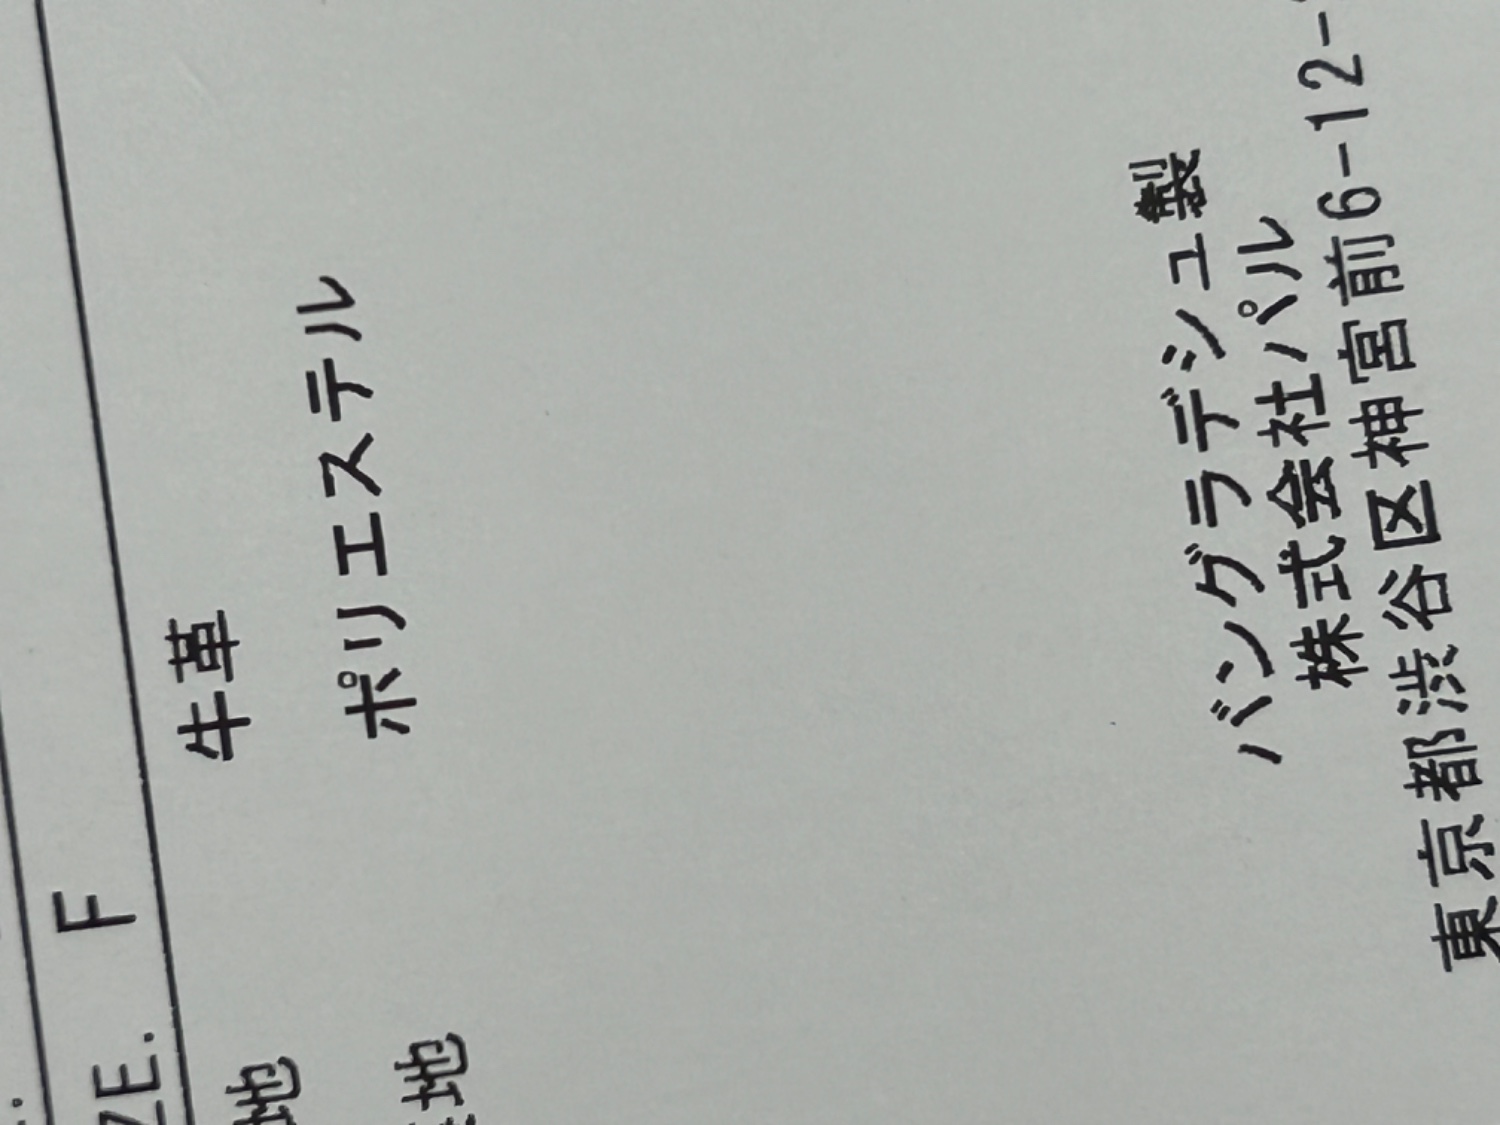 ZE. F
地 牛革
地 ポリエステル
バングラデシュ製
株式会社パル
東京都渋谷区神宮前6-12-